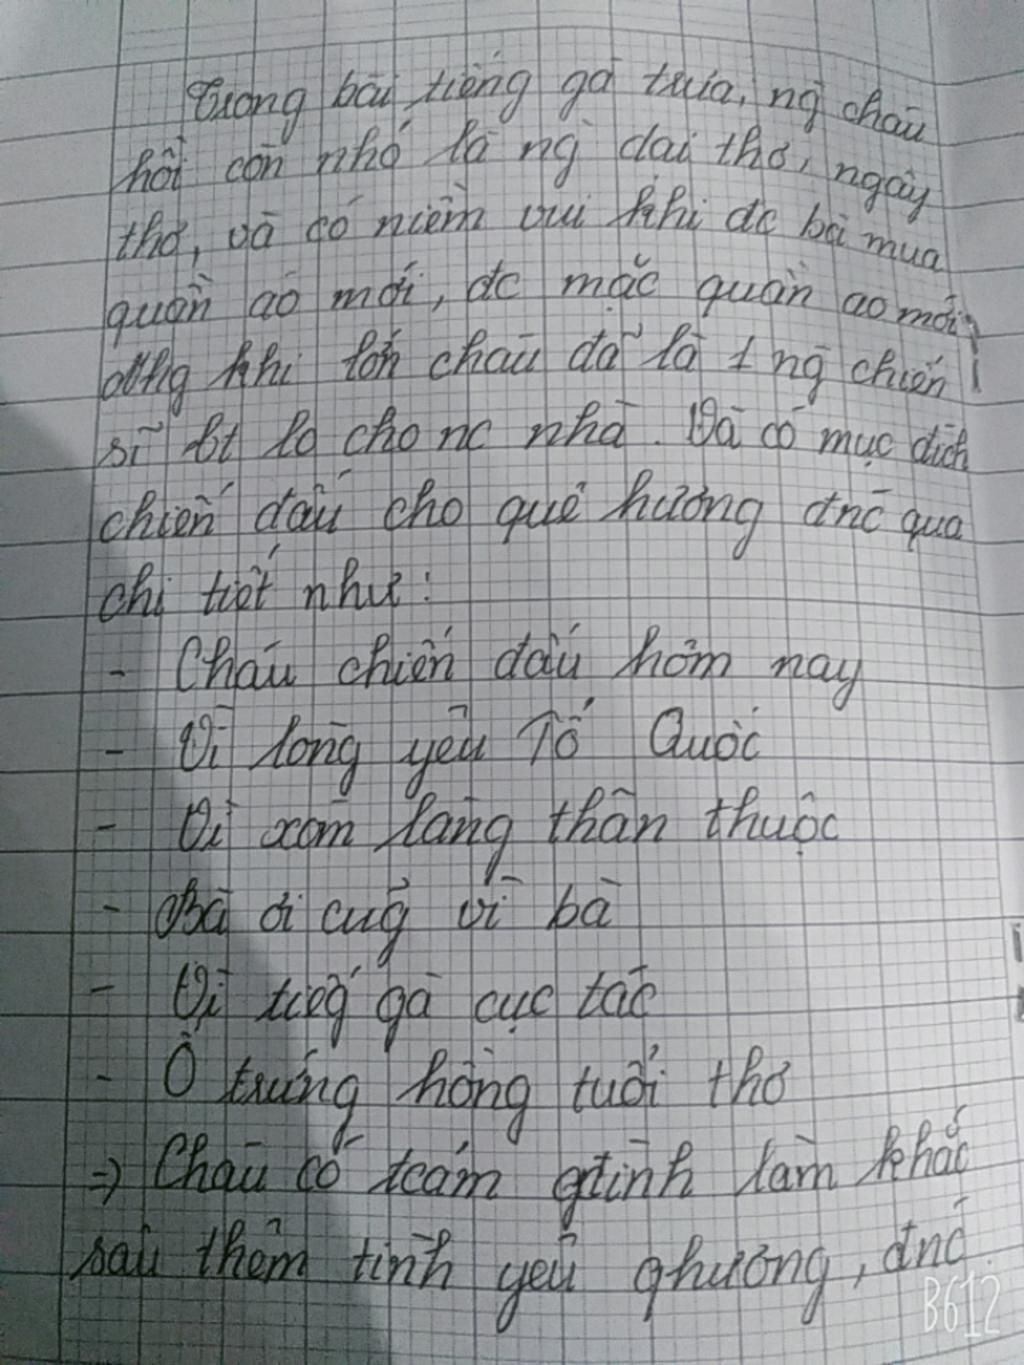 Trong bài tiếng gà trưa, ng cháu
hồi còn nhỏ là ng dại thơ, ngây
thơ, và có niềm vui khi đc bà mua
quần áo mới, đc mặc quần áo mới
khi lớn cháu đã là 1 ng chiến
sĩ bt lo cho nc nhà. Và có mục đích
chiến đấu cho quê hương đnc qua
chi tiết như:
- Cháu chiến đấu hôm nay
- Vì lòng yêu Tổ Quốc
- Vì xóm làng thân thuộc
- Bà ơi cug̃ vì bà
- Vì tiếg gà cục tác
- Ổ trứng hồng tuổi thơ
=> Cháu có tcảm gtình làm khắc
sâu thêm tình yêu qhương, đnc
B612